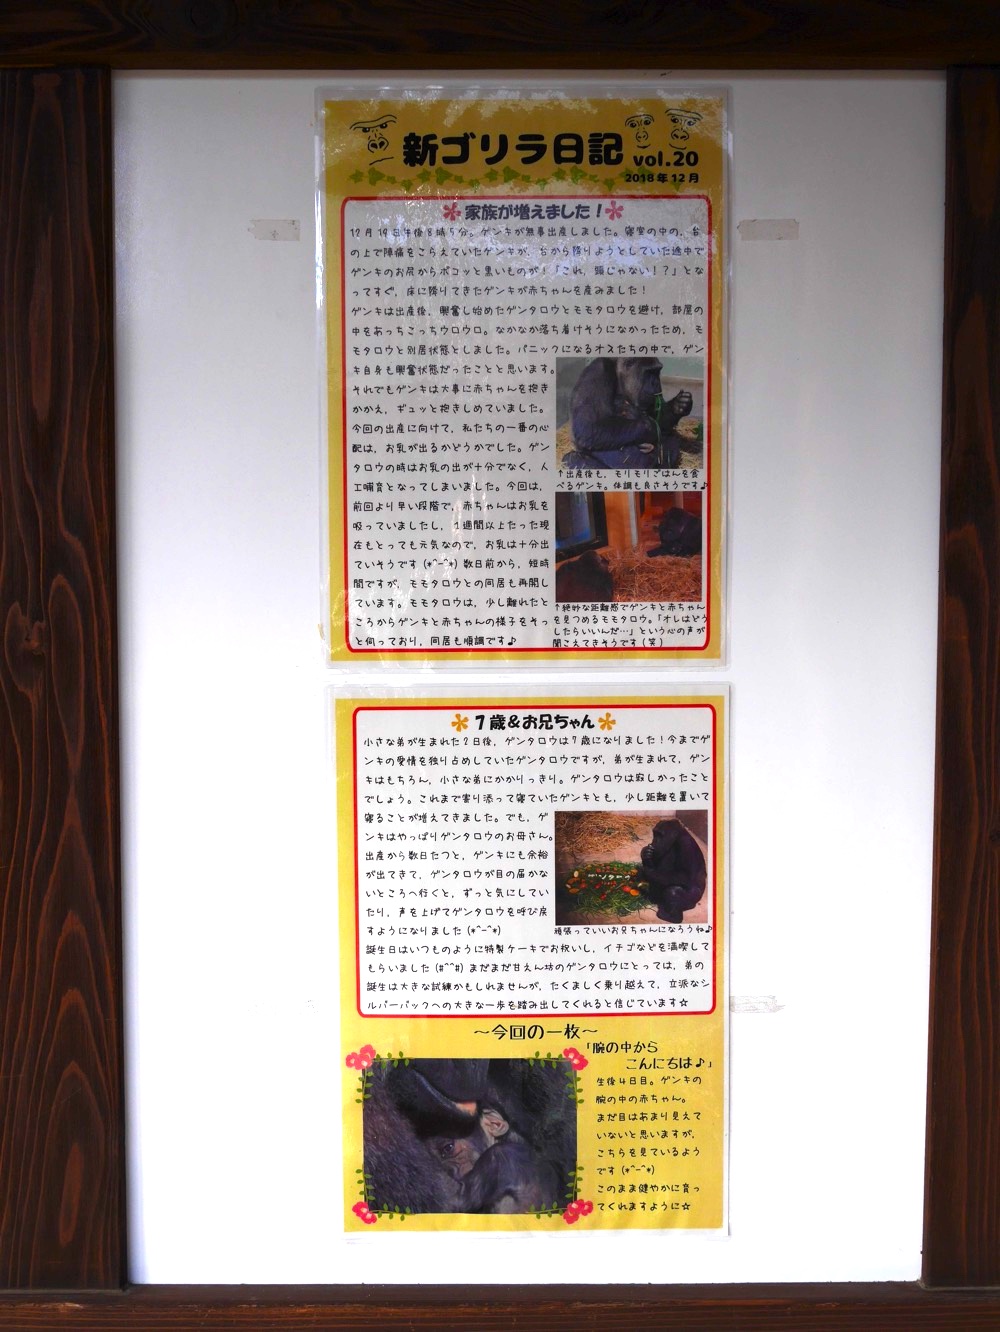 新ゴリラ日記 vol.20
2018年12月
家族が増えました！
12月19日午後8時5分。ゲンキが無事出産しました。寝室の中の、台
の上で陣痛をこらえていたゲンキが、台から降りようとしていた途中で
ゲンキのお尻からポコッと黒いものが！「これ、頭じゃない！？」とな
ってすぐ、床に降りてきたゲンキが赤ちゃんを産みました！
ゲンキは出産後、興奮し始めたゲンタロウとモモタロウを避け、部屋の
中をあっちこっちウロウロ。なかなか落ち着けそうになかったため、モ
モタロウと別居状態としました。パニックになるオスたちの中で、ゲン
キ自身も興奮状態だったことと思います。
それでもゲンキは大事に赤ちゃんを抱き
かかえ、ギュッと抱きしめていました。
今回の出産に向けて、私たちの一番の心
配は、お乳が出るかどうかでした。ゲン
タロウの時はお乳の出が十分でなく、人
工哺育となってしまいました。今回は、
前回より早い段階で、赤ちゃんはお乳を
吸っていましたし、1週間以上たった現
在もとっても元気なので、お乳は十分出
ていそうです(*^-^*)数日前から、短時
間ですが、モモタロウとの同居も再開し
ています。モモタロウは、少し離れたと
ころからゲンキと赤ちゃんの様子をそっ
と伺っており、同居も順調です♪
↑出産後も、モリモリごはんを食
べるゲンキ。体調も良さそうです♪
↑絶妙な距離感でゲンキと赤ちゃん
を見つめるモモタロウ。「オレはどう
したらいいんだ…」という心の声が
聞こえてきそうです(笑)
7歳＆お兄ちゃん
小さな弟が生まれた2日後、ゲンタロウは7歳になりました！今までゲ
ンキの愛情を独り占めしていたゲンタロウですが、弟が生まれて、ゲン
キはもちろん、小さな弟にかかりっきり。ゲンタロウは寂しかったこと
でしょう。これまで寄り添って寝ていたゲンキとも、少し距離を置いて
寝ることが増えてきました。でも、ゲ
ンキはやっぱりゲンタロウのお母さん。
出産から数日たつと、ゲンキにも余裕
が出てきて、ゲンタロウが目の届かな
いところへ行くと、ずっと気にしてい
たり、声を上げてゲンタロウを呼び戻
すようになりました(*^-^*)
頑張っていいお兄ちゃんになろうね♪
誕生日はいつものように特製ケーキでお祝いし、イチゴなどを満喫して
もらいました(#^^#)まだまだ甘えん坊のゲンタロウにとっては、弟の
誕生は大きな試練かもしれませんが、たくましく乗り越えて、立派なシ
ルバーバックへの大きな一歩を踏み出してくれると信じています☆
～今回の一枚～
「腕の中から
こんにちは♪」
生後4日目。ゲンキの
腕の中の赤ちゃん。
まだ目はあまり見えて
いないと思いますが、
こちらを見ているよう
です(*^-^*)
このまま健やかに育っ
てくれますように☆